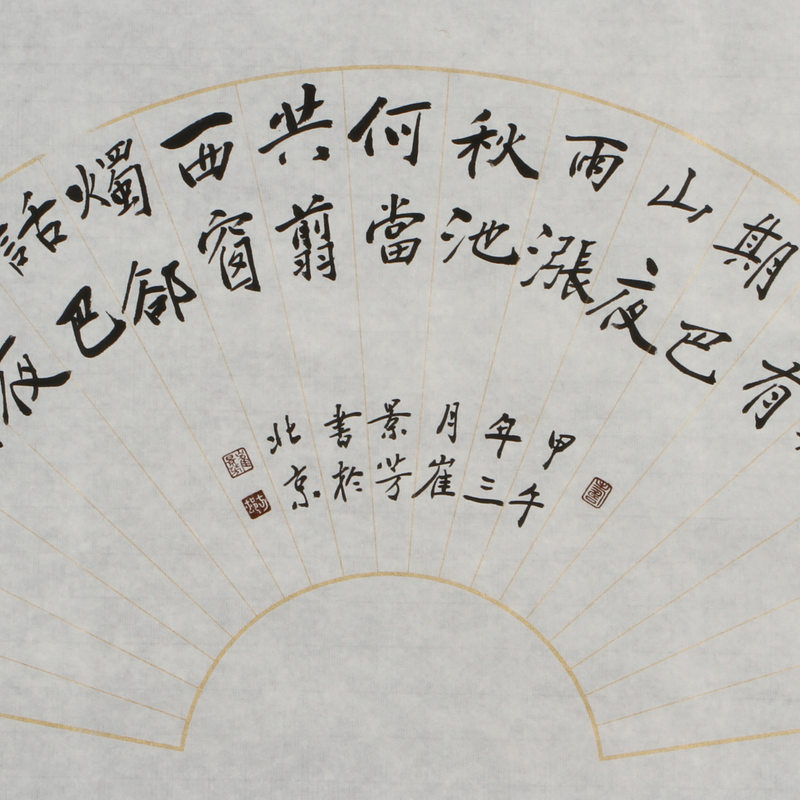 有
期巴
山夜
雨漲
秋池
何當
共翦
西窗
燭郤
話巴
夜
甲午
年三
月崔
景芳
書於
北京